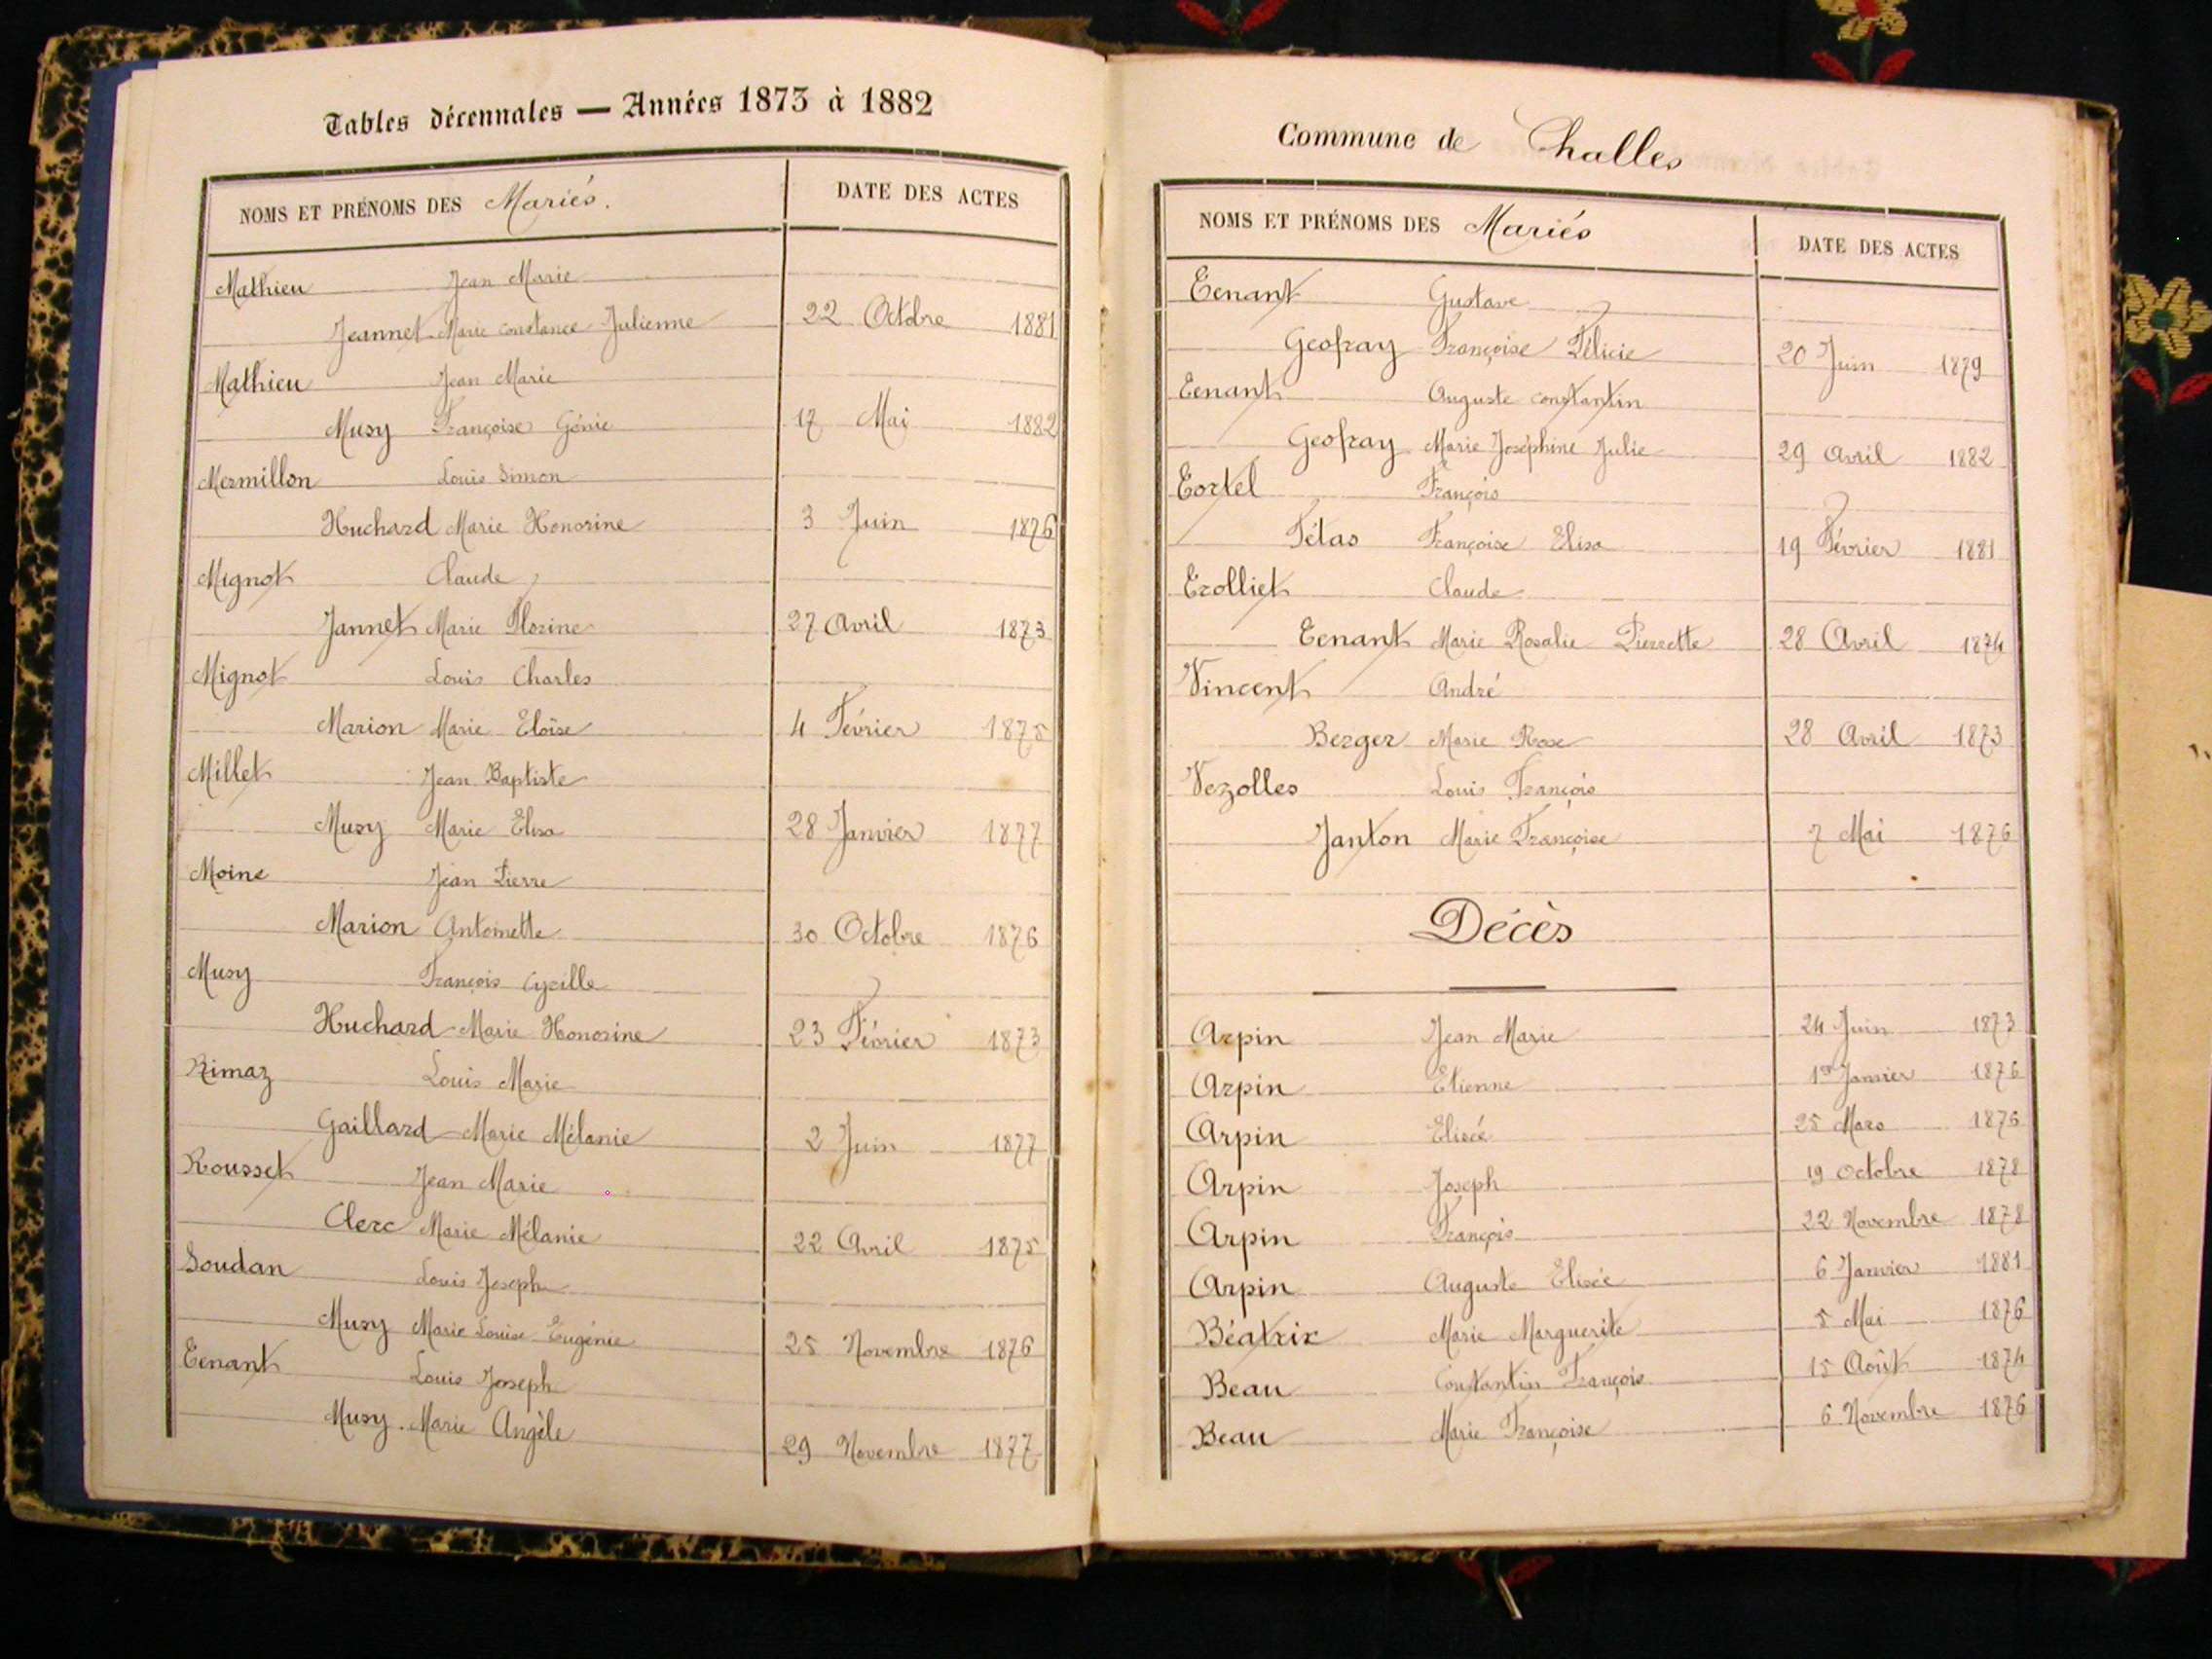 Tables décennales — Années 1873 à 1882
NOMS ET PRÉNOMS DES Mariés. DATE DES ACTES
Mathieu Jean Marie
Jeannet Marie Constance Julienne 22 Octobre 1881
Mathieu Jean Marie
Musy Françoise Génie 17 Mai 1882
Mermillon Louis Simon
Huchard Marie Honorine 3 Juin 1876
Mignot Claude
Jannet Marie Florine 27 Avril 1873
Mignot Louis Charles
Marion Marie Eloïse 4 Février 1875
Millet Jean Baptiste
Musy Marie Elisa 28 Janvier 1877
Moine Jean Pierre
Marion Antoinette 30 Octobre 1876
Musy François Cyrille
Huchard Marie Honorine 23 Février 1873
Rimaz Louis Marie
Gaillard Marie Mélanie 2 Juin 1877
Rousset Jean Marie
Clerc Marie Mélanie 22 Avril 1875
Soudan Louis Joseph
Musy Marie Louise Eugénie 25 Novembre 1876
Tenant Louis Joseph
Musy Marie Angèle 29 Novembre 1877
Commune de Challes
NOMS ET PRÉNOMS DES Mariés DATE DES ACTES
Tenant Gustave
Geofray Françoise Félicie 20 Juin 1879
Tenant Auguste Constantin
Geofray Marie Joséphine Julie 29 Avril 1882
Tortel François
Fétas Françoise Elisa 19 Février 1881
Trolliet Claude
Tenant Marie Rosalie Pierrette 28 Avril 1874
Vincent André
Berger Marie Rose 28 Avril 1873
Vezolles Louis François
Janton Marie Françoise 7 Mai 1876
Décès
Arpin Jean Marie 24 Juin 1873
Arpin Etienne 1er Janvier 1876
Arpin Elisée 25 Mars 1876
Arpin Joseph 19 Octobre 1878
Arpin François 22 Novembre 1878
Arpin Auguste Elisée 6 Janvier 1881
Béatrix Marie Marguerite 5 Mai 1876
Beau Constantin François 15 Août 1874
Beau Marie Françoise 6 Novembre 1876